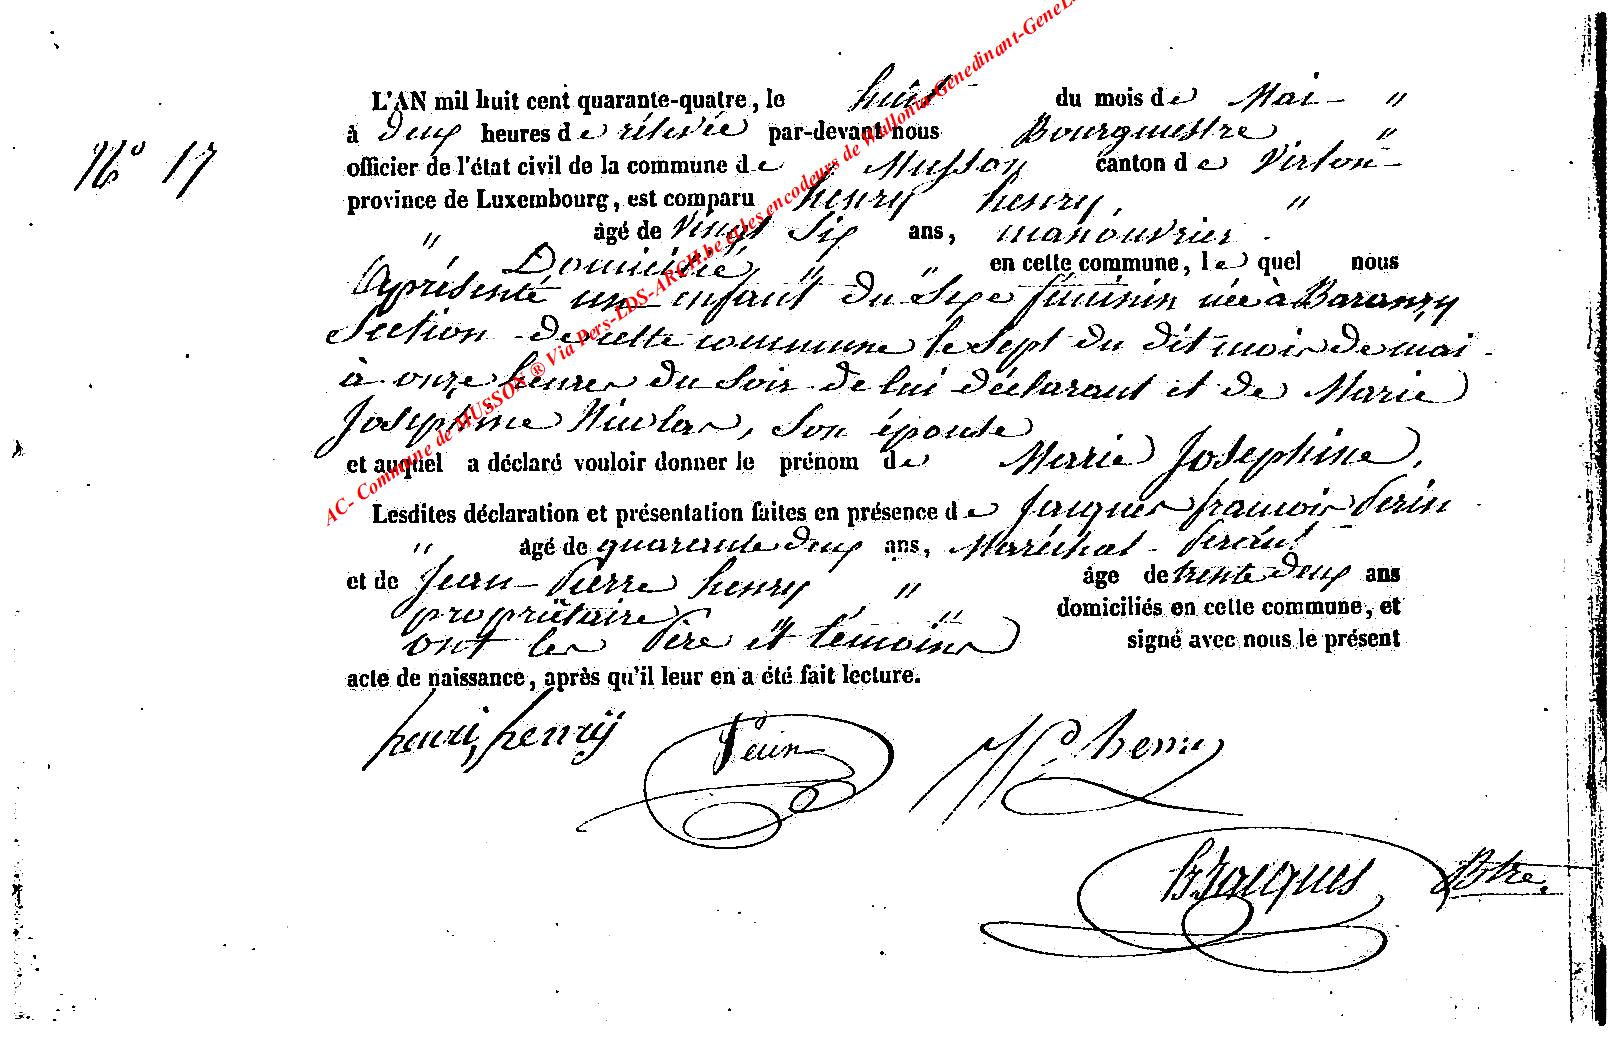 L'AN mil huit cent quarante-quatre, le huit du mois de Mai - "
N.° 17
à deux heures de rélevée par-devant nous Bourgmestre "
officier de l'état civil de la commune de Musson canton de Virton -
province de Luxembourg, est comparu henry henry, "
" âgé de vingt Six ans, manouvrier -
Domicilié " " en cette commune, le quel nous
A présenté un enfant du Sexe féminin née à Baranzy
Section de cette commune le Sept du dit mois de mai -
à onze heures du Soir de lui déclarant et de Marie
Josephine Nicolas, Son épouse
et auquel a déclaré vouloir donner le prénom de Marie Josephine,
Lesdites déclaration et présentation faites en présence de Jacques françois Perin
" âgé de quarante deux ans, Maréchal - ferant
et de Jean - Pierre henry " âge de trente deux ans
propriétaire " " domiciliés en cette commune, et
ont les Père et témoins signé avec nous le présent
acte de naissance, après qu'il leur en a été fait lecture.
henri, henrÿ Perin henry
Jacques Btre.
AC- Commune de MUSSON ® Via Pers-LDS-ARCH.be et les encodeurs de Wallonia-Genedinant-GeneL